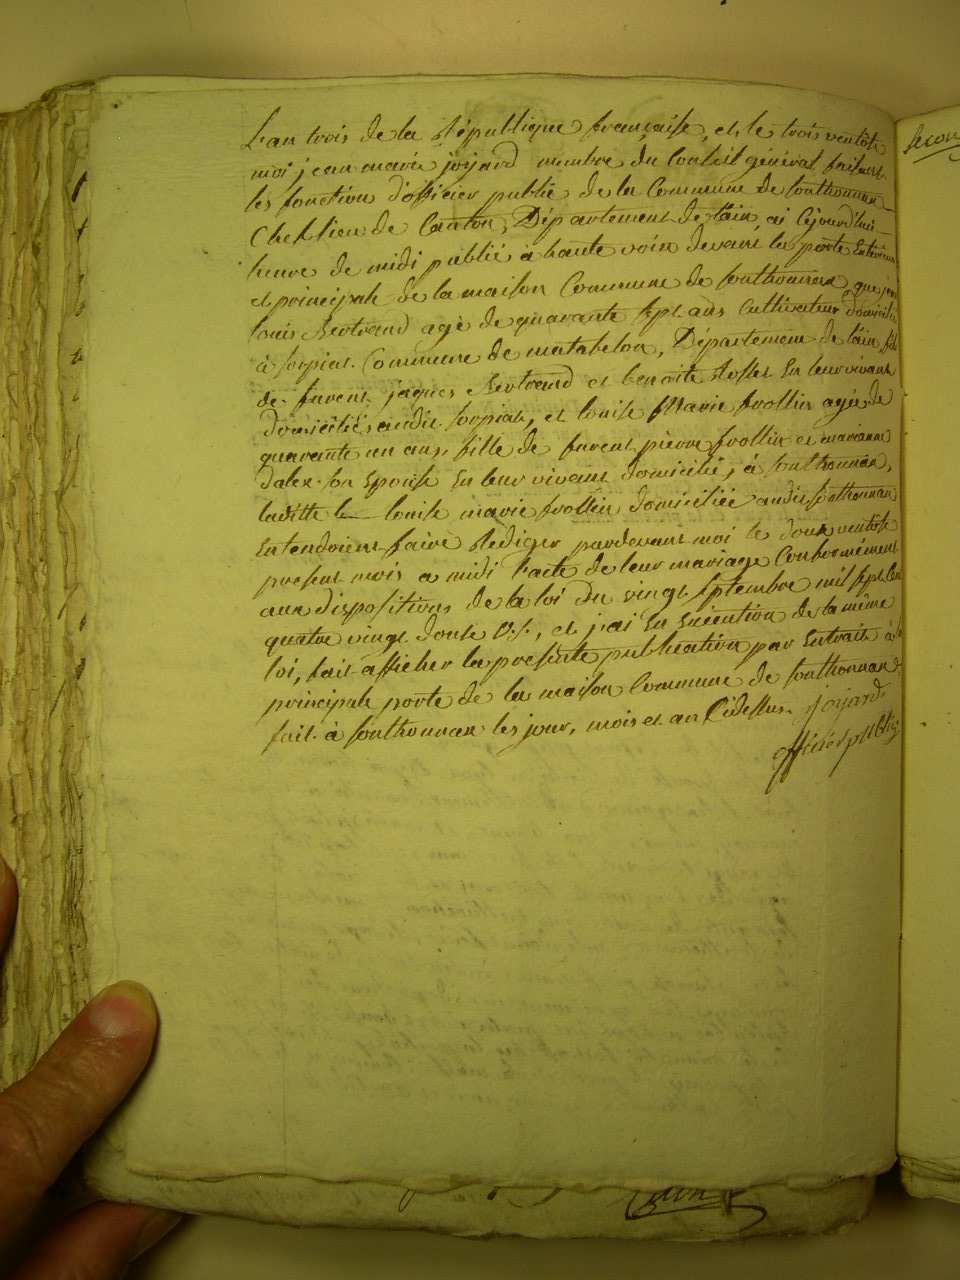 L'an trois de la République française, et le trois ventôse
moi jean marie joyard membre du Conseil général faisant
les fonction d'officier public de la Commune de Sonthonnax
Chef lieu de Canton, Département de l'ain, ai cejourd'hui
heure de midi publié à haute voix devant la porte Exterieure
et principale de la maison Commune de Sonthonnax, que jean
louis Bertrand agé de quarante sept ans Cultivateur domicilié
à sorpiat Commune de matafelon, Département de l'ain, fils
de furent jaques Bertrand et benoite En leur vivant
domiciliés audit sorpiat, et louise Marie frollin agée de
quarante un ans, fille de furent pierre frollin et marianne
dalex son Epouse En leur vivant domicilié, à Sonthonnax,
laditte louise marie frollin domiciliée audit Sonthonnax
Entendoient faire Rediger pardevant moi le douze ventôse
present mois a midi l'acte de leur mariage Conformément
aux dispositions de la loi du vingt Septembre mil sept Cent
quatre vingt douse V.S., et j'ai En Execution de la même
loi, fait afficher la presente publication par Extrait à la
principale porte de la maison Commune de Sonthonnax
fait à Sonthonnax les jour, mois et an Cidessus. joyard
officier public